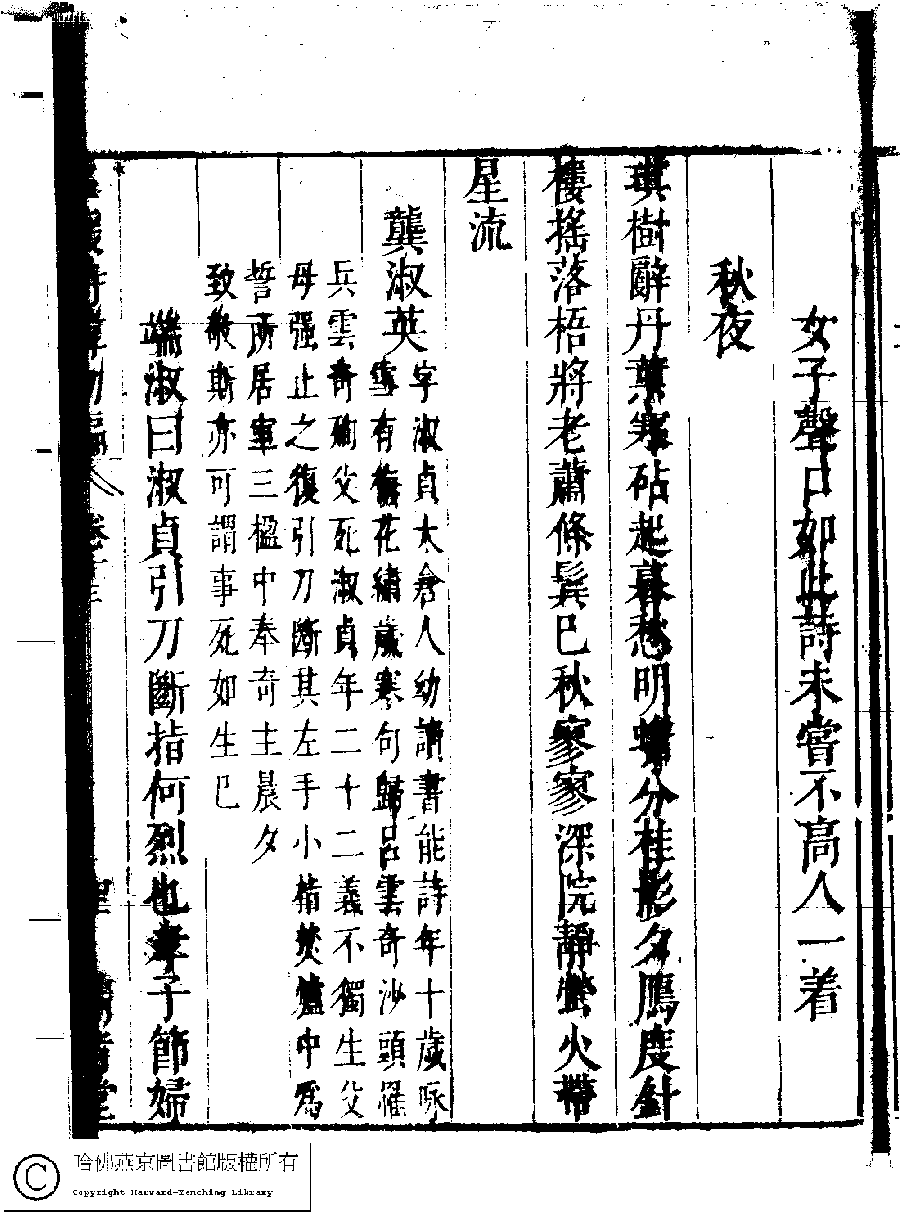 女子聲口如此詩未嘗不高人一着
秋夜
琪樹辭丹葉寒砧起暮愁明蟾分桂影夕鴈度針
樓搖落梧將老蕭條鬂已秋寥寥深院靜螢火帶
星流
龔淑英
字淑貞太倉人幼讀書能詩年十歲咏
雪有梅花繡歲寒句歸呂雲奇沙頭罹
兵雲奇殉父死淑貞年二十二義不獨生父
母强止之復引刀斷其左手小指焚爐中爲
誓所居室三楹中奉奇主晨夕
致敬斯亦可謂事死如生已
端淑曰淑貞引刀斷指何烈也孝子節婦
初編
卷十三
堂
哈佛燕京圖書館版權所有
Copyright Harvard-Yenching Library